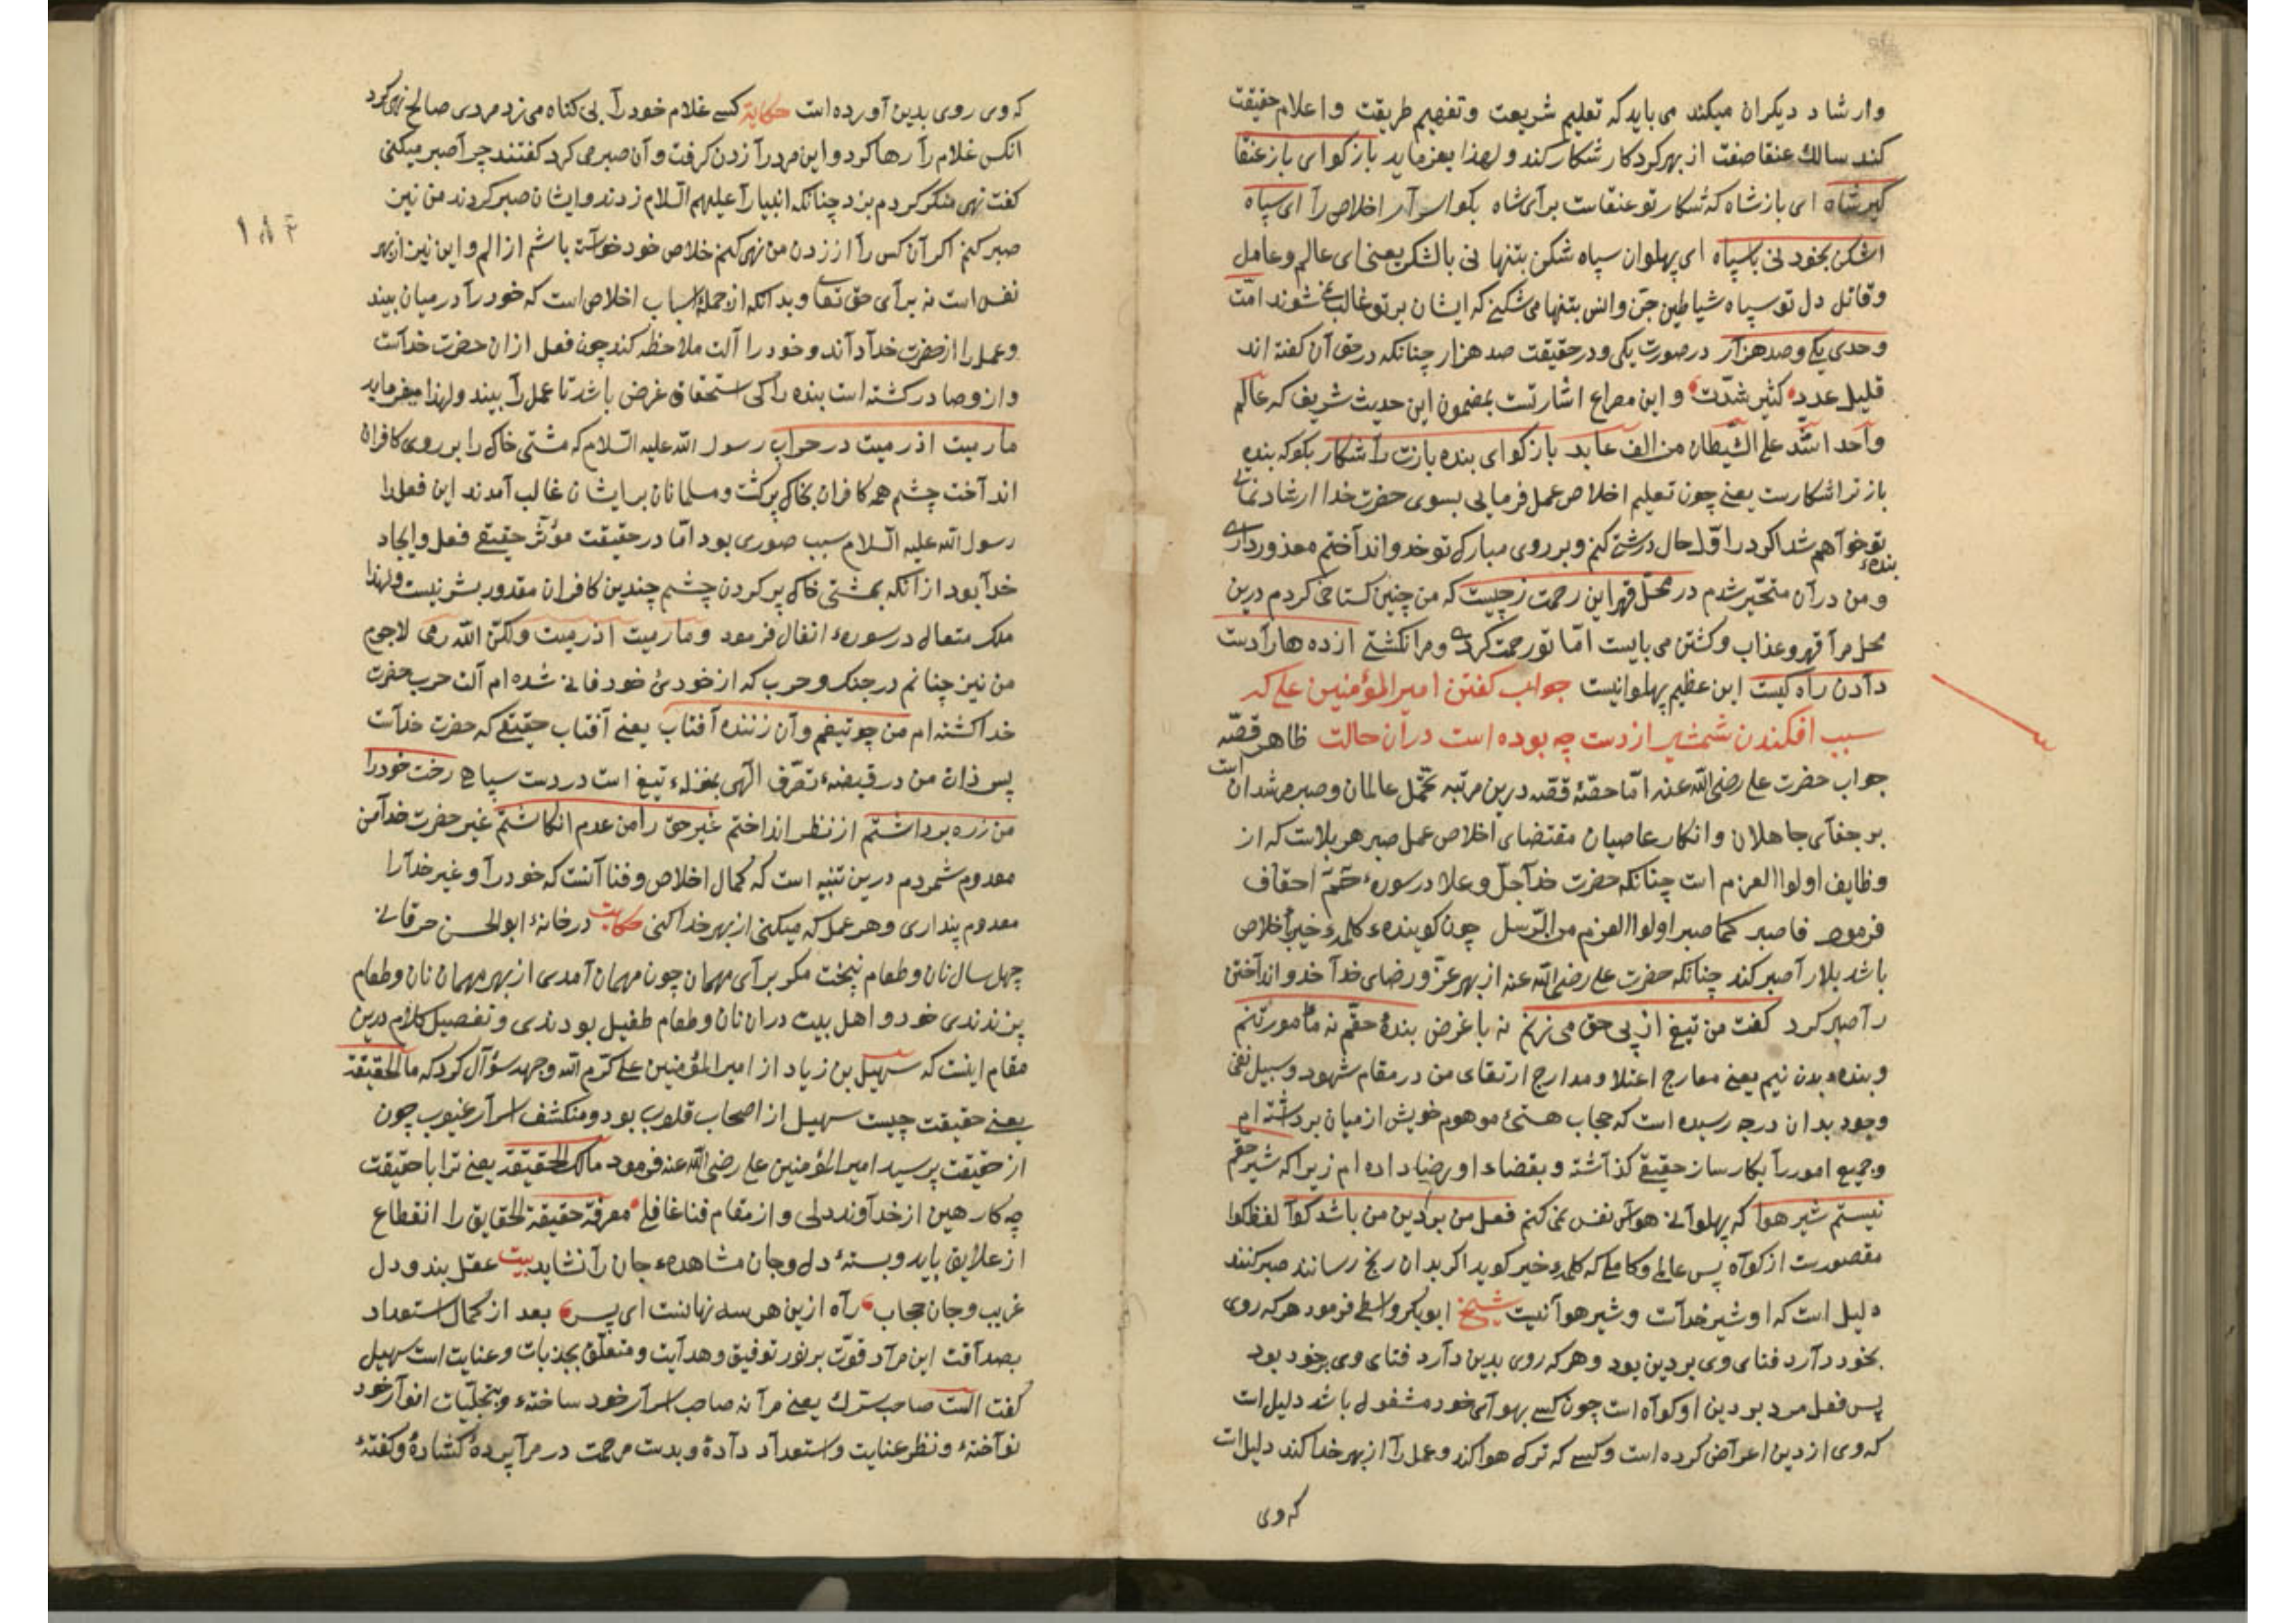 وارشاد دیکران میکند می باید که تعلیم شریعت وتفهیم طریقت واعلام حقیقت
کند سالک عنقا صفت از بهر کردکار شکار کند ولهذا یفرماید بازکو ای باز عنقا
کیر شاه ای باز شاه که شکار تو عنقاست برآی شاه بکو اسرار اخلاص رآ ای سپاه
اشکن بخود نی با سپاه ای پهلوان سپاه شکن بتنها نی بالشکر یعنی ای عالم وعامل
وقاتل دل تو سپاه شیاطین جن وانس بتنها می شکنی که ایشان بر تو غالب شوند امّت
وحدی یکی وصد هزار در صورت یکی ودر حقیقت صد هزار چنانکه در حق آن کفته اند
قلیل عدد کثیر شدّت واین مصراع اشارتست بمضمون این حدیث شریف که عالم
وآحد اشد علی الشیطان من الف عابد بازکو ای بنده بازت رآ شکار بکو که بنده
باز ترا شکارست یعنی چون تعلیم اخلاص عمل فرمایی بسوی حضرت خدا ارشاد نمایی
بنده تو خوآهم شد اکر در اوّل حال درشتی کنم وبر روی مبارک تو خدو اندآختم معذور داری
ومن در آن متحیّر شدم در محل قهر این رحمت ز چیست که من چنین کستاخی کردم درین
محل مرآ قهر وعذاب وکشتن می بایست امّا تو رحمت کردی ومرا نکشتی ازده هارآ دست
دآدن رآه کیست این عظیم پهلوانیست جواب کفتن امیر المؤمنین علی که
سبب افکندن شمشیر از دست چه بوده است در آن حالت ظاهر قصّه
جواب حضرت علی رضی الله عنه است امّا حصّهٔ قصّه درین مرتبه تحمّل عالمان وصبر مرشدان
بر جفآی جاهلان وانکار عاصیان مقتضای اخلاص عمل صبر هر بلاست که از
وظایف اولوا العزم است چنانکه حضرت خدآ جلّ وعلا در سورهٔ حمّ احقاف
فرمود فاصبر کما صبر اولوا العزم من الرّسل چون کوینده کلمهٔ خیر اخلاص
باشد بلارآ صبر کند چنانکه حضرت علی رضی الله عنه از بهر عزّ ورضای خدآ خدو اندآختن
رآ صبر کرد کفت من تیغ از پی حق می زنم نه با غرض بندهٔ حقّم نه مأمور تنم
وبنده بدن نیم یعنی معارج اعتلا ومدارج ارتقای من در مقام شهود وسبیل نفی
وجود بدان درجه رسیده است که حجاب هستیٔ موهوم خویش از میان برداشته ام
وجمیع امور رآ بکارساز حقیقی کذآشته وبقضاء او رضا داده ام زیرا که شیر حقّم
نیستم شیر هوا که پهلوآنی هوآس نفس نمی کنم فعل من بر دین من باشد کوآ لفظ کوا
مقصورست از کوآه پس عالم وکامل که کلمهٔ خیر کوید اکر بدان رنج رسانند صبر کنند
دلیل است که او شیر خدآست وشیر هوآ نیست شیخ ابوبکر واسطی فرمود هرکه روی
بخود دآرد فنای وی بر دین بود وهرکه روی بدین دآرد فنای وی بر خود بود
پس فعل مرد بر دین او کوآه است چون کسی بهوآی خود مشغول باشد دلیل است
که وی از دین اعرآض کرده است وکسی که ترک هوا کند وعمل رآ از بهر خدا کند دلیل است
که وی
که وی روی بدین آورده است حکایة کسی غلام خود رآ بی کناه می زد مردی صالح نهی کرد
انکس غلام رآ رها کرد واین مرد رآ زدن کرفت وآن صبر می کرد کفتند چرآ صبر میکنی
کفت نهی منکر کردم بزد چنانکه انبیارآ علیهم السّلام زدند وایشان صبر کردند من نیز
صبر کنم اکر آن کس رآ از زدن من نهی کنم خلاص خود خوآسته باشم از الم واین نیز از بهر
نفس است نه برآی حق تعالی وبدانکه از جملهٔ اسباب اخلاص است که خود رآ در میان نبیند
وعمل را از حضرت خدآ دآند وخود را آلت ملاحظه کند چون فعل از ان حضرت خدآست
واز وصادر کشته است بنده را کی استحقاق غرض باشد تا عمل رآ بیند ولهذا میفرماید
مارمیت اذ رمیت در حراب رسول الله علیه السّلام که مشتی خاک را بر روی کافران
اندآخت چشم همه کافران بخاک پر کشت ومسلمانان بر ایشان غالب آمدند این فعل را
رسول الله علیه السّلام سبب صوری بود امّا در حقیقت مؤثّر حقیقی فعل وایجاد
خدآ بود از آنکه بمشتی خاک پر کردن چشم چندین کافران مقدور بشر نیست ولهذا
ملک متعال در سورهٔ انفال فرمود ومارمیت اذ رمیت ولکنّ الله رمی لاجرم
من نیز چنانم در جنک وحرب که از خودیٔ خود فانی شده ام آلت حرب حضرت
خدا کشته ام من چو تیغم وآن زننده آفتاب یعنی آفتاب حقیقی که حضرت خدآست
پس ذات من در قبضهٔ تصرّف الهی بمنزلهٔ تیغ است در دست سپاهی رخت خود را
من ز ره برداشتم از نظر انداختم غیر حق رآ من عدم انکاشتم غیر حضرت خدآ من
معدوم شمردم درین تنبیه است که کمال اخلاص وفنا آنست که خود رآ وغیر خدآ را
معدوم پنداری وهر عمل که میکنی از بهر خدا کنی حکایت در خانهٔ ابو الحسن خرقانی
چهل سال نان وطعام نپخت مکر برآی مهمان چون مهمان آمدی از بهر مهمان نان وطعام
پزندندی خود واهل بیت در ان نان وطعام طفیل بودندی وتفصیل کلام درین
مقام اینست که سهیل بن زیاد از امیر المؤمنین علی کرّم الله وجهه سؤآل کرد که ما الحقیقة
یعنی حقیقت چیست سهیل از اصحاب قلوب بود ومنکشف اسرآر غیوب چون
از حقیقت پرسید امیر المؤمنین علی رضی الله عنه فرمود مالک الحقیقة یعنی ترا با حقیقت
چه کار هین از خدآوند دلی واز مقام فنا غافلی معرفة حقیقة الحقایق را انقطاع
از علایق باید وبستهٔ دل وجان مشاهدهٔ جان رآ نشاید بیت عقل بند ودل
غریب وجان حجاب رآه ازین هر سه نهانست ای پس بعد از کمال استعداد
بصدآقت این مرآد قوّت بر نور توفیق وهدآیت ومتعلّق بجذبات وعنایت است سهیل
کفت الست صاحب سرّک یعنی مرآ نه صاحب اسرآر خود ساختهٔ وبتجلّیات انوآر خود
نوآختهٔ ونظر عنایت واستعدآد دآدهٔ وبدست مرحمت در مرآ پردهٔ کشادهٔ وکفتهٔ